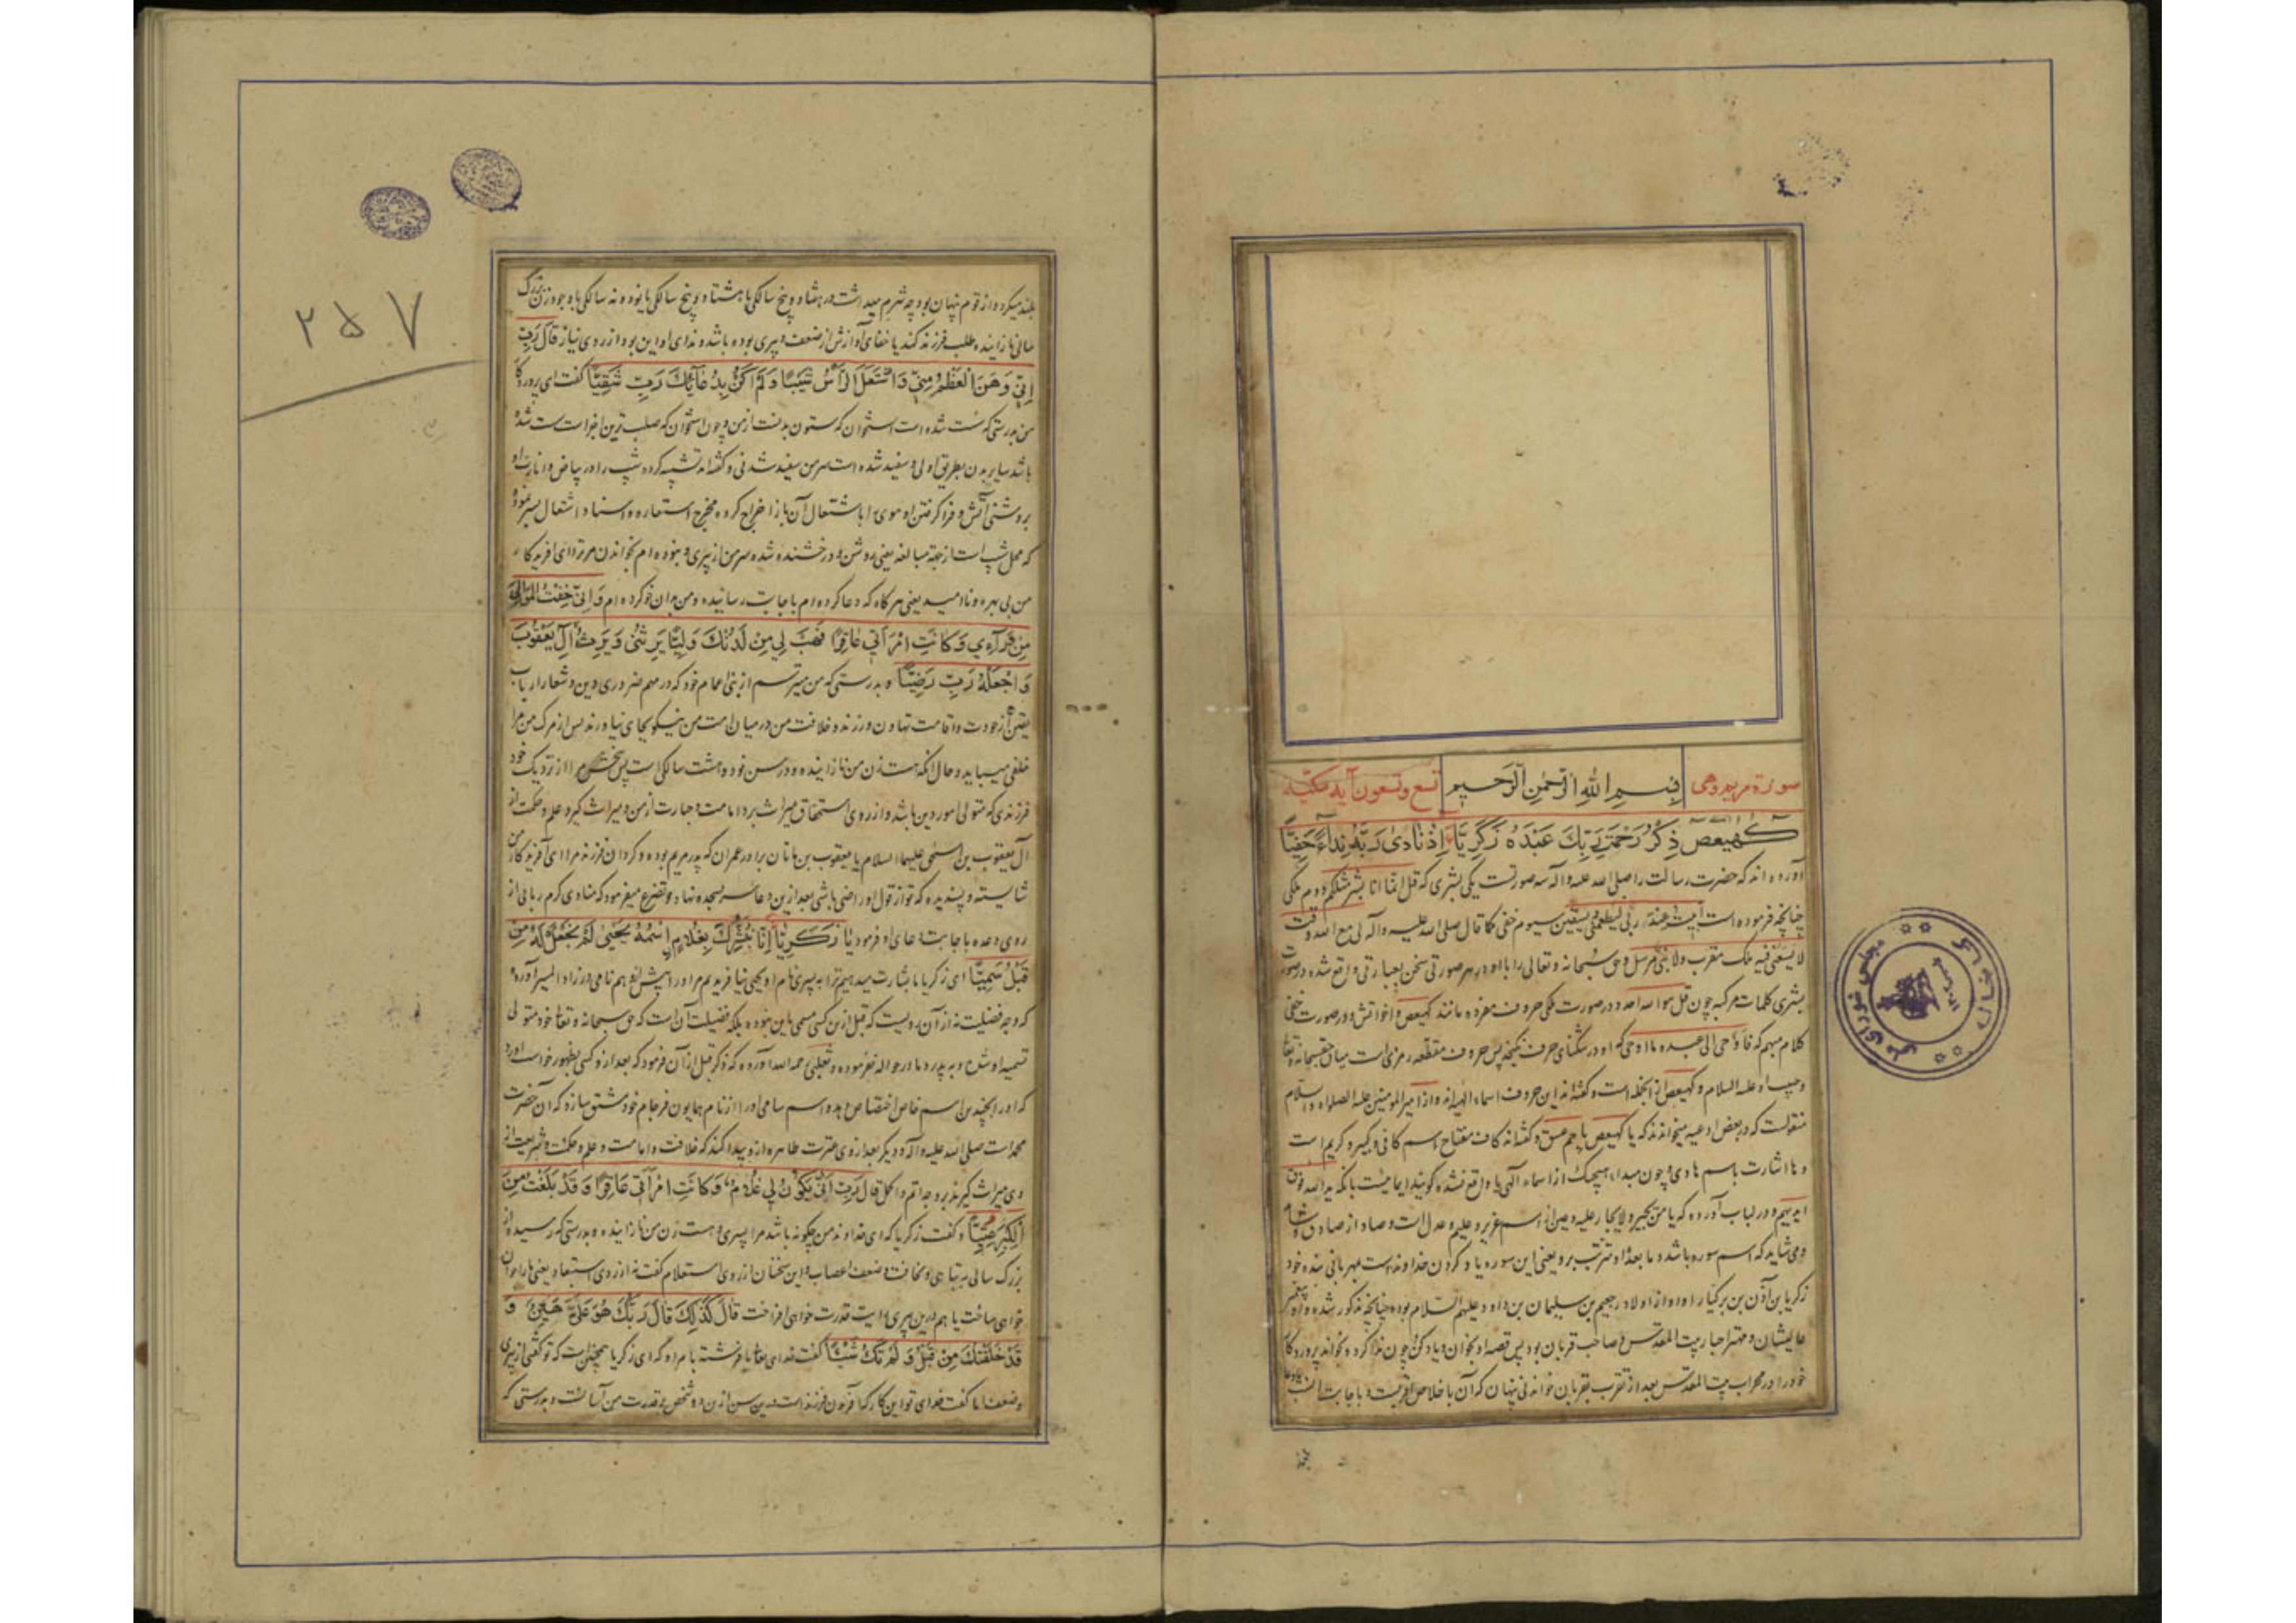 سورة مریم وهی
بسم الله الرحمن الرحیم
تسع وتسعون آیه مکیه
كهيعص ذِكْرُ رَحْمَتِ رَبِّكَ عَبْدَهُ زَكَرِيَّاءَ إِذْ نَادَى رَبَّهُ نِدَاءً خَفِيًّا
آورده اند که حضرت رسالت را صلی الله علیه وآله سه صورتست یکی بشری که قل انما انا بشر مثلکم دوم ملکی
چنانچه فرموده است عند ربی یطعمنی ویسقین سیوم حقی کما قال صلی الله علیه وآله لی مع الله وقت
لا یسعنی فیه ملک مقرب ولا نبی مرسل وحق سبحانه وتعالی را با او در هر صورتی سخن بعبارتی واقع شده در صورت
بشری کلمات مرکبه چون قل هو الله احد و در صورت ملکی حروف مفرده مانند کهیعص واخواتش و در صورت حقی
کلام مبهم که فاوحی الی عبده ما اوحی که او در تنکنای حرف نکنجد پس حروف مقطعه رمزی است میان حقسبحانه وتعالی
وحبیب او علیه السلام و کهیعص از انجمله است و گفته اند این حروف اسماء الهی اند و از امیر المومنین علیه الصلواه والسلام
منقولست که در بعض ادعیه میخواندند که یا کهیعص یا حم عسق و گفته اند کاف مفتاح اسم کافی و کبیر و کریم است
وها اشارت باسم هادی و چون مبداء هیچیک از اسماء الهی یا واقع نشده گویند ایمائیست بانکه ید الله فوق
ایدیهم و در لباب آورده که یا من یجیر ولا یجار علیه وعین از اسم عزیز وعلیم وعدل است وصاد از صادق
ومی شاید که اسم سوره باشد وما بعد او مترتب برو یعنی این سوره یاد کردن خداوند است بمهربانی بنده خود
زکریا بن آذن بن برکیا را واو از اولاد رجعیم بن سلیمان بن داود علیهم السلام بوده چنانچه مذکور شده واو پیغمبر
عالیشان ومهتر احبار بیت المقدس وصاحب قربان بود پس قصه او بخوان ویاد کن چون ندا کرد وبخواند پروردکار
خود را در محراب بیت المقدس بعد از تقرب بقربان خواندنی پنهان که آن باخلاص اقربست و باجابت انسب
بلند میکرد و از قوم پنهان بود چه شرم میداشت در هفتاد و پنج سالگی یا هشتاد و پنج سالگی یا نود و نه سالگی با وجود زن بزرگ
سالی نازاینده طلب فرزند کند یا خفای آوازش از ضعف و پیری بوده باشد و ندای او این بود از روی نیاز قَالَ رَبِّ
إِنِّي وَهَنَ الْعَظْمُ مِنِّي وَاشْتَعَلَ الرَّأْسُ شَيْبًا وَلَمْ أَكُنْ بِدُعَائِكَ رَبِّ شَقِيًّا گفت ای پروردکار
من بدرستی که سست شده است استخوان که ستون بدنست از من و چون استخوان که صلب ترین اجزا است سست شده
باشد سایر بدن بطریق اولی و سفید شده است سر من سفید شدنی و گفته اند تشبیه کرده شیب را در بیاض وانارت او
بروشنی آتش و فرا گرفتن او موی را باشتعال آن باز اخراج کرده مخرج استعاره واسناد اشتعال بسر نموده
که محل شیب است از جهة مبالغه یعنی روشن و درخشنده شده سر من از پیری و نبوده ام بخواندن مر ترا ای آفریدکار
من بی بهره و ناامید یعنی هرگاه که دعا کرده ام باجابت رسانیده و من بدان خو کرده ام وَإِنِّي خِفْتُ الْمَوَالِيَ
مِنْ وَرَائِي وَكَانَتِ امْرَأَتِي عَاقِرًا فَهَبْ لِي مِنْ لَدُنْكَ وَلِيًّا يَرِثُنِي وَيَرِثُ مِنْ آلِ يَعْقُوبَ
وَاجْعَلْهُ رَبِّ رَضِيًّا و بدرستی که من میترسم از بنی اعمام خود که در مهم ضروری دین و شعار ارباب
یقین از جودت واقامت تهاون ورزند وخلافت من در میان امت من نیکو بجای نیاورند پس از مرگ من مرا
خلفی میباید وحال آنکه هست زن من نازاینده و در سن نود و هشت سالگی است پس ببخش مرا از نزدیک خود
فرزندی که متولی امور دین باشد و از روی استحقاق میراث برد امامت و حبارت از من و میراث گیرد علم وحکمت از
آل یعقوب بن اسحق علیهما السلام یا یعقوب بن ماتان برادر عمران که پدر مریم بوده و گردان فرزند مرا ای آفریدکار من
شایسته و پسندیده که تو از قول او راضی باشی بعد ازین دعا سر بسجده نهاد و تضرع میفرمود که منادی کرم ربانی از
روی وعده باجابت دعای او فرمود يَا زَكَرِيَّا إِنَّا نُبَشِّرُكَ بِغُلَامٍ اسْمُهُ يَحْيَى لَمْ نَجْعَلْ لَهُ مِنْ
قَبْلُ سَمِيًّا ای زکریا ما بشارت میدهیم ترا به پسری نام او یحیی نیافریدیم مر او را پیش ازو هم نامی در زاد المسیر آورده
که وجه فضیلت نه از آن رویست که قبل ازین کسی مسمی باین نبوده بلکه فضیلت آن است که حق سبحانه وتعالی خود متولی
تسمیه او شده و به پدر و مادر حواله نفرموده و ثعلبی رحمه الله آورده که ذکر قبل از آن فرمود که بعد ازو کسی بظهور خواست آورد
که او را بچندین اسم خاص اختصاص بدهد واسم سامی او را از نام همایون فرجام خود مشتق سازد که آن حضرت
محمد است صلی الله علیه وآله و دیگر بعد از وی عترت طاهره ازو پیدا کند که خلافت وامامت و علم و حکمت و شریعت از
وی میراث گیرند بر وجه اتم و اکمل قَالَ رَبِّ أَنَّى يَكُونُ لِي غُلَامٌ وَكَانَتِ امْرَأَتِي عَاقِرًا وَقَدْ بَلَغْتُ مِنَ
الْكِبَرِ عِتِيًّا گفت زکریا که ای خداوند من چگونه باشد مرا پسری و هست زن من نازاینده و بدرستی که رسیده ام از
بزرگ سالی به تباهی و نحافت وضعف اعصاب و این سخنان از روی استعلام گفت نه از روی استبعاد یعنی ما را جوان
خواهی ساخت یا هم درین پیری رایت قدرت خواهی افراخت قَالَ كَذَلِكَ قَالَ رَبُّكَ هُوَ عَلَيَّ هَيِّنٌ وَ
قَدْ خَلَقْتُكَ مِنْ قَبْلُ وَلَمْ تَكُ شَيْئًا گفت خدای تعالی یا فرشته بامر او که ای زکریا همچنین است که تو گفتی از پیری
وضعف اما گفت خدای تو این کار که آفریدن فرزند است درین سن ازین دو شخص بر قدرت من آسانست و بدرستی که
۲۵۷